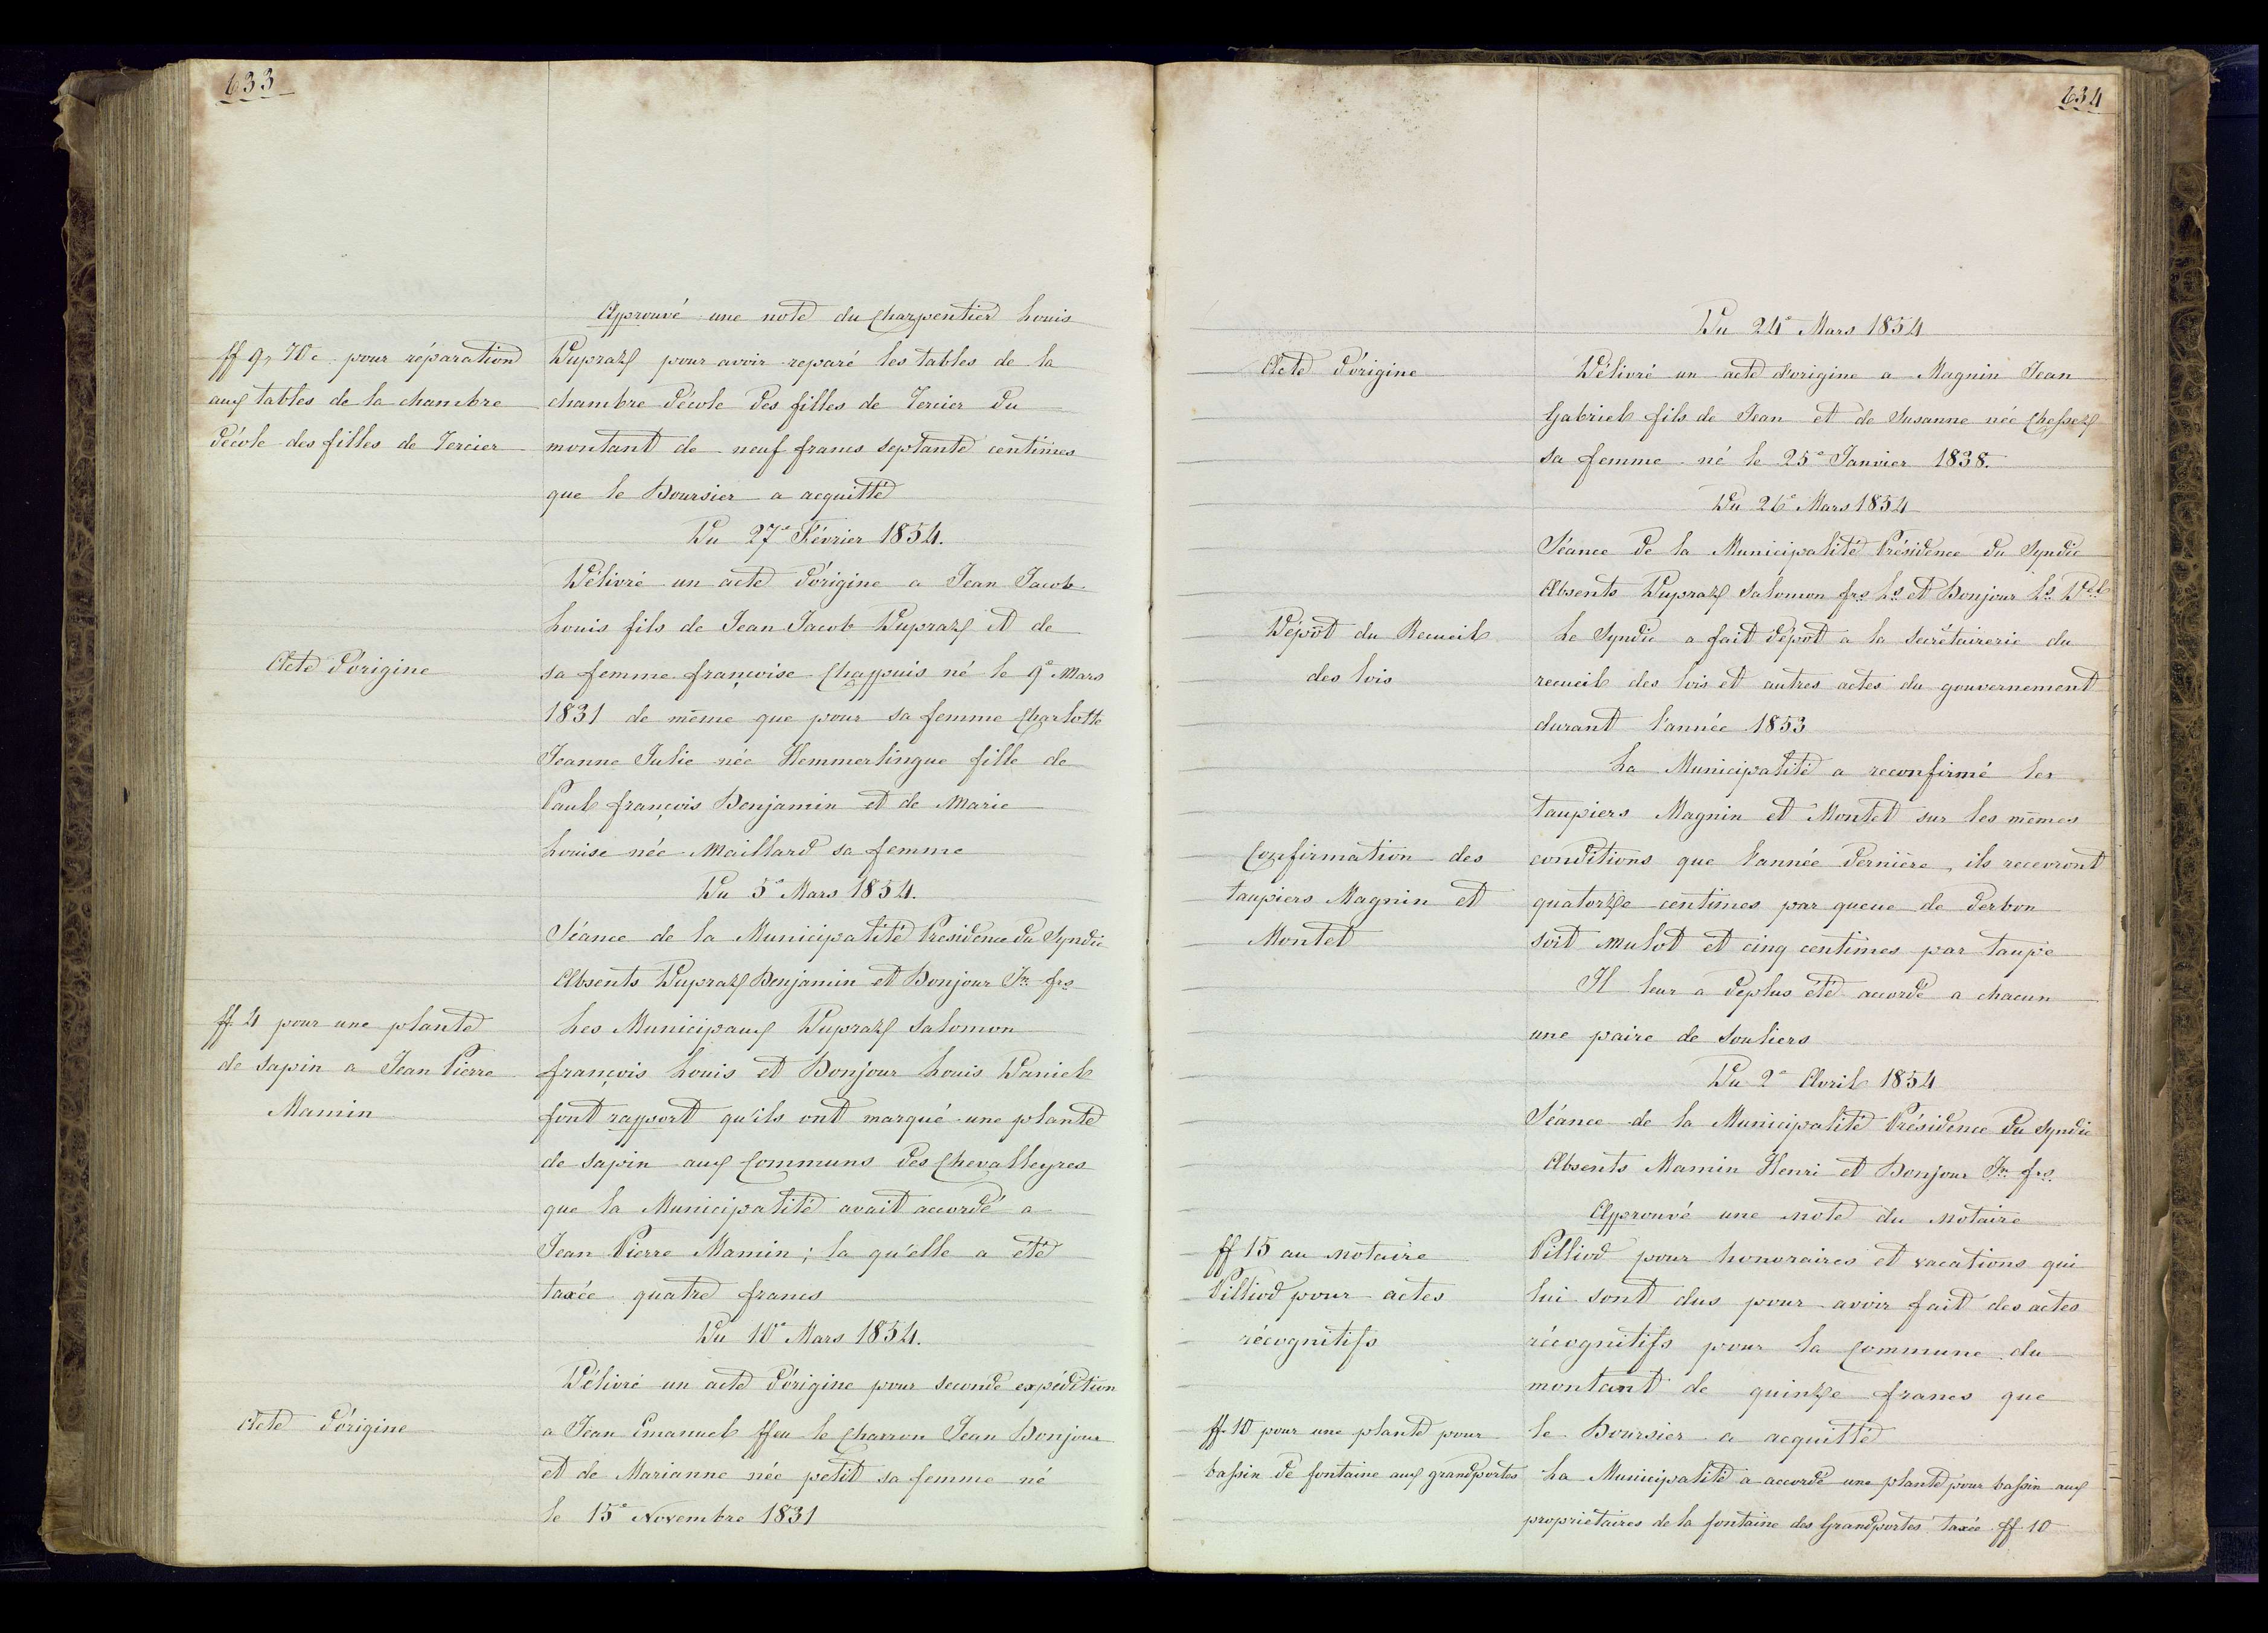 633
Approuvé une note du Charpentier Louis
ff 9, 70 c. pour réparation
aux tables de la chambre
d'école des filles de Tercier
Dupraz pour avoir reparé les tables de la
chambre d'école des filles de Tercier du
montant de neuf francs septante centimes
que le Boursier a acquitté
Du 27e Février 1854.
Délivré un acte d'origine a Jean Jacob
Louis fils de Jean Jacob Dupraz et de
Acte d'origine
sa femme françoise Chappuis né le 9e Mars
1831 de même que pour sa femme Charlotte
Jeanne Julie née Hemmerlingue fille de
Paul françois Benjamin et de Marie
Louise née Maillard sa femme
Du 5e Mars 1854.
Séance de la Municipalité Presidence du Syndic
Absents Dupraz Benjamin et Bonjour Jn frs
ff 4 pour une plante
de sapin a Jean Pierre
Mamin
Les Municipaux Dupraz Salomon
françois Louis et Bonjour Louis Daniel
font rapport qu'ils ont marqué une plante
de sapin aux Communs des Chevalleyres
que la Municipalité avait accordé a
Jean Pierre Mamin ; la qu'elle a été
taxée quatre francs
Du 10e Mars 1854.
Délivré un acte d'origine pour seconde expédition
Acte d'origine
a Jean Emanuel ffeu le Charron Jean Bonjour
et de Marianne née petit sa femme né
le 15e Novembre 1831
634
Du 24e Mars 1854
Acte d'origine
Délivré un acte d'origine a Magnin Jean
Gabriel fils de Jean et de Susanne née Chessex
sa femme né le 25e Janvier 1838.
Du 26e Mars 1854
Séance de la Municipalité Présidence du Syndic
Absents Dupraz Salomon frs Ls et Bonjour Ls Del
Dépôt du Recueil
des lois
Le Syndic a fait dépôt a la secrétairerie du
recueil des lois et autres actes du gouvernement
durant l'année 1853
La Municipalité a reconfirmé les
taupiers Magnin et Montet sur les mêmes
Confirmation des
taupiers Magnin et
Montet
conditions que l'année dernière, ils recevront
quatorze centimes par queue de derbon
soit mulot et cinq centimes par taupe
Il leur a deplus été accordé a chacun
une paire de souliers
Du 2e Avril 1854
Séance de la Municipalité Présidence du Syndic
Absents Mamin Henri et Bonjour Jn frs
Approuvé une note du notaire
ff 15 au notaire
Pilliod pour actes
récognitifs
Pilliod pour honoraires et vacations qui
lui sont dus pour avoir fait des actes
récognitifs pour la Commune du
montant de quinze francs que
le Boursier a acquitté
ff 10 pour une plante pour
bassin de fontaine aux grandportes
La Municipalité a accordé une plante pour bassin aux
propriétaires de la fontaine des Grandportes taxée ff 10